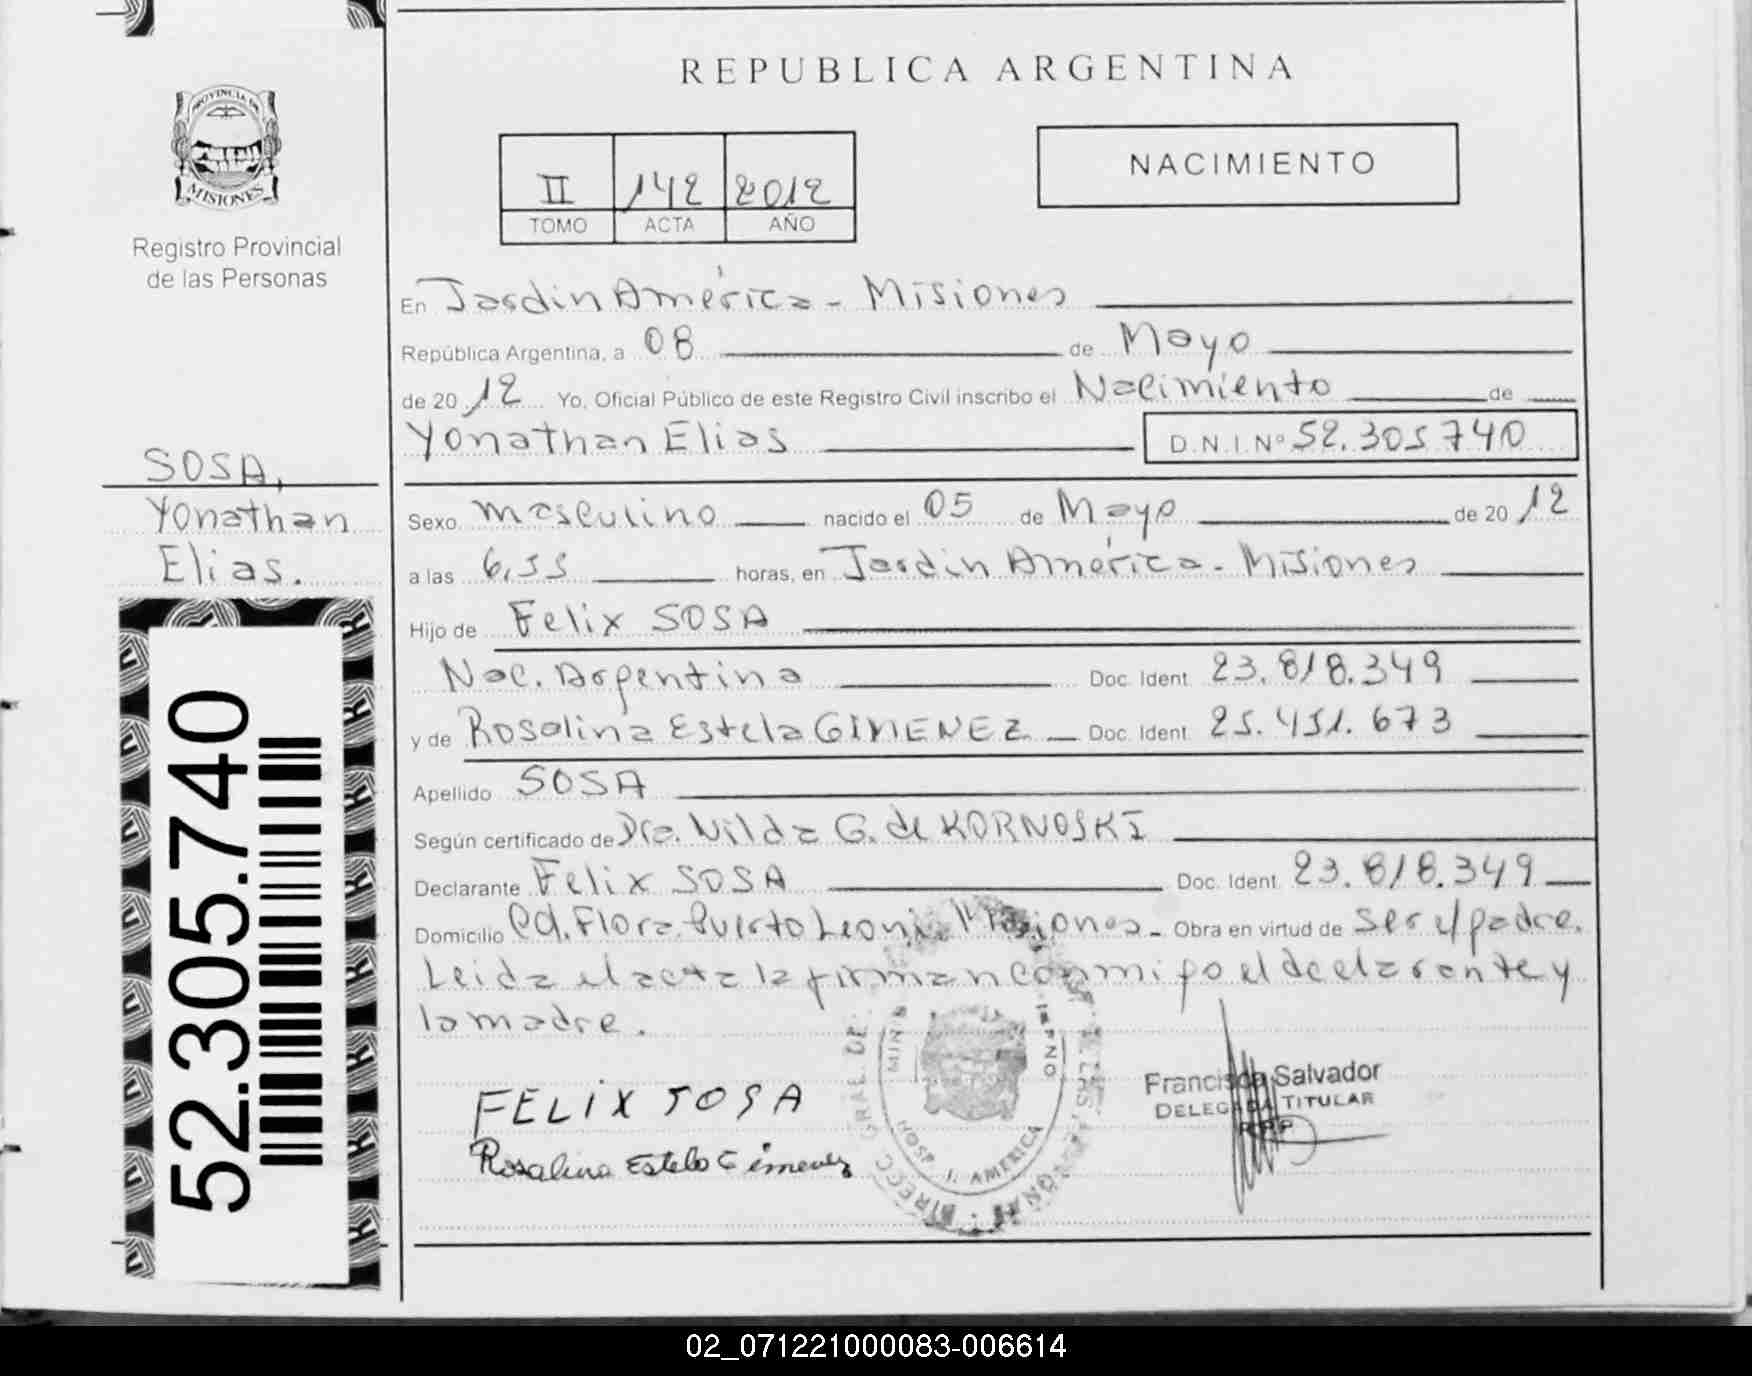 REPUBLICA ARGENTINA
PROVINCIA DE
MISIONES
Registro Provincial
de las Personas
II 142 2012
TOMO ACTA AÑO
NACIMIENTO
En Jardin América - Misiones
República Argentina, a 08 de Mayo
de 20 12 Yo, Oficial Público de este Registro Civil inscribo el Nacimiento de
Yonathan Elias D.N.I.Nº 52.305740
SOSA,
Yonathan
Elias.
Sexo masculino nacido el 05 de Mayo de 20 12
a las 6,55 horas, en Jardin América - Misiones
Hijo de Felix SOSA
Nac. Argentina Doc. Ident. 23.818.349
y de Rosalina Estela GIMENEZ Doc. Ident. 25.451.673
Apellido SOSA
Según certificado de Dra. Nilda G. de KORNOSKI
Declarante Felix SOSA Doc. Ident. 23.818.349
Domicilio Flora Puerto Leoni Misiones - Obra en virtud de ser el padre.
Leida el acta la firman conmigo el declarante y
la madre.
52.305.740
FELIX SOSA
Rosalina Estela Gimenez
HOSP. J. AMERICA
Francisca Salvador
DELEGADA TITULAR
R.P.P
02_071221000083-006614